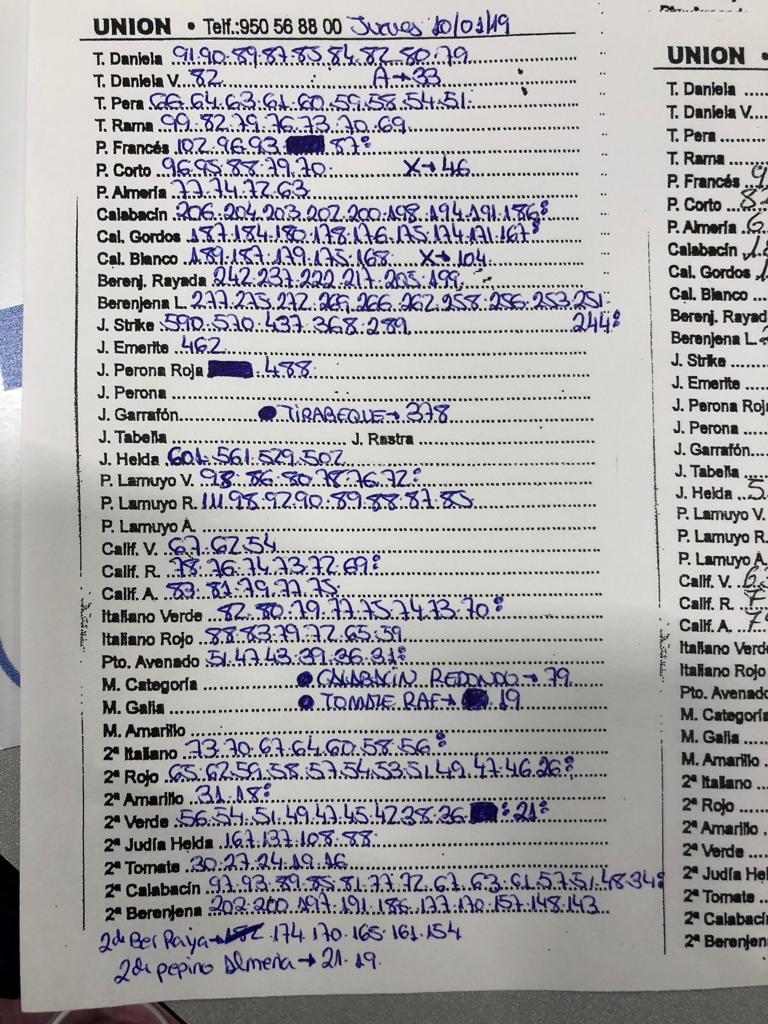 UNION • Telf.:950 56 88 00 Jueves 10/01/19
T. Daniela 91.90.89.87.85.84.82.80.79
T. Daniela V. 82 A→33
T. Pera 66.64.63.61.60.59.58.54.51
T. Rama 99.82.79.76.73.70.69
P. Francés 102.96.93 87:
P. Corto 96.95.88.79.70 X→46
P. Almería 77.74.72.63
Calabacín 206.204.203.202.200.198.194.191.186:
Cal. Gordos 187.184.180.178.176.175.174.171.167:
Cal. Blanco 189.187.179.175.168 X→104
Berenj. Rayada 242.237.222.217.205.199
Berenjena L. 277.275.272.269.266.262.258.256.253.251
J. Strike 590.570.437.368.289 244:
J. Emerite 462
J. Perona Roja 488
J. Perona
J. Garrafón TIRABEQUE→378
J. Tabella J. Rastra
J. Helda 601.561.529.502
P. Lamuyo V. 98.86.80.78.76.72:
P. Lamuyo R. 111.98.92.90.89.88.87.85
P. Lamuyo A.
Calif. V. 67.62.54
Calif. R. 78.76.74.73.72.69:
Calif. A. 83.81.79.77.75
Italiano Verde 82.80.79.77.75.74.73.70:
Italiano Rojo 88.83.79.72.65.59
Pto. Avenado 51.47.43.39.36.31:
M. Categoría CALABACIN REDONDO→79
M. Galia TOMATE RAF→ 19
M. Amarillo
2ª Italiano 73.70.67.64.60.58.56:
2ª Rojo 65.62.59.58.57.54.53.51.49.47.46.26:
2ª Amarillo 31.18:
2ª Verde 56.54.51.49.47.45.42.38.36 : 21:
2ª Judía Helda 167.137.108.88
2ª Tomate 30.27.24.19.16
2ª Calabacín 97.93.89.85.81.77.72.67.63.61.57.51.48.34:
2ª Berenjena 202.200.197.191.186.177.170.157.148.143
2da Ber Raya→ 174.170.165.161.154
2da pepino Almeria→21.19.
UNION •
T. Daniela
T. Daniela V.
T. Pera
T. Rama
P. Francés
P. Corto
P. Almería
Calabacín
Cal. Gordos
Cal. Blanco
Berenj. Rayad
Berenjena L.
J. Strike
J. Emerite
J. Perona Roj
J. Perona
J. Garrafón
J. Tabella
J. Helda
P. Lamuyo V.
P. Lamuyo R.
P. Lamuyo A.
Calif. V.
Calif. R.
Calif. A.
Italiano Verd
Italiano Rojo
Pto. Avenado
M. Categoría
M. Galia
M. Amarillo
2ª Italiano
2ª Rojo
2ª Amarillo
2ª Verde
2ª Judía Hel
2ª Tomate
2ª Calabacín
2ª Berenjen